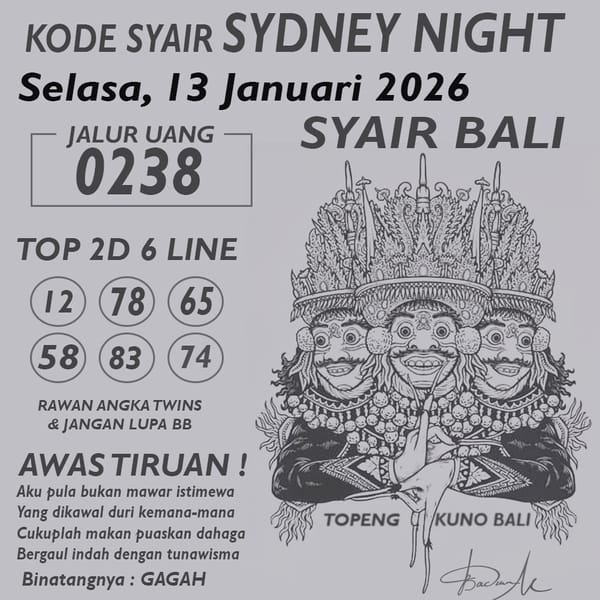 KODE SYAIR SYDNEY NIGHT
Selasa, 13 Januari 2026
JALUR UANG
0238
SYAIR BALI
TOP 2D 6 LINE
12 78 65
58 83 74
RAWAN ANGKA TWINS
& JANGAN LUPA BB
AWAS TIRUAN !
Aku pula bukan mawar istimewa
Yang dikawal duri kemana-mana
Cukuplah makan puaskan dahaga
Bergaul indah dengan tunawisma
Binatangnya : GAGAH
TOPENG KUNO BALI